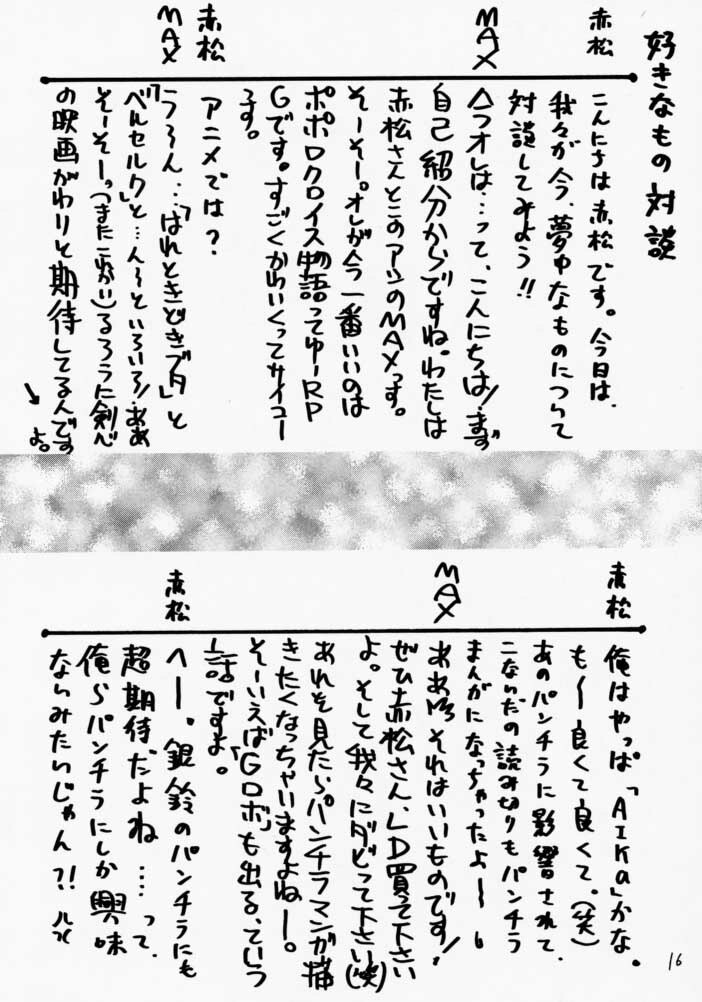 好きなもの対談
赤松
こんにちは赤松です。今日は、
我々が今、夢中なものについて
対談してみよう!!
MAX
へつオレは…って、こんにちは!まず
自己紹分からですね。わたしは
赤松さんとこのアシのMAXっす。
そーそー。オレが今一番いいのは
ポポロクロイス物語ってゆーRP
Gです。すごくかわいくってサイコー
です。
赤松
アニメでは?
MAX
うーん…「はれときどきブタ」と
「ベルセルク」と…んーといろいろ!ああ
そーそーっ(またこれかい)るろうに剣心
の映画がわりと期待してるんです
よ。
赤松
俺はやっぱ「AIKa」かな。
も〜良くて良くて。(笑)
あのパンチラに影響されて、
こないだの読み切りもパンチラ
まんがになっちゃったよ〜
MAX
ああ それはいいものです!
ぜひ赤松さん、LD買って下さい
よ。そして我々にダビって下さい(笑)
あれを見たらパンチラマンガ描
きたくなっちゃいますよねー。
そーいえば「Gロボ」も出る、ていう
話ですよ。
赤松
へー。銀鈴のパンチラにも
超期待だよね……って、
俺らパンチラにしか興味
ないみたいじゃん?!
16